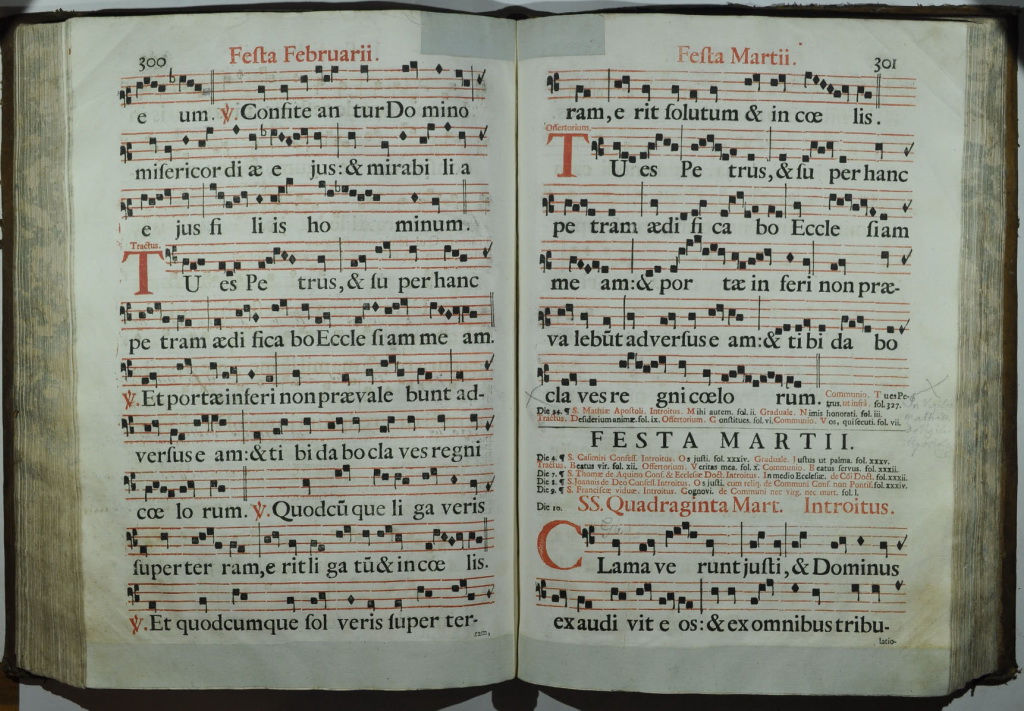 300
Feſta Februarii.
e um. ℣. Confite an tur Do mino
miſericor di æ e jus: & mirabi li a
e jus fi li is ho minum.
Tractus.
TU es Pe trus, & ſu per hanc
pe tram ædi fica bo Eccle ſiam me am.
℣. Et portæ inferi non præ vale bunt ad-
verſus e am: & ti bi da bo cla ves regni
cœ lo rum. ℣. Quodcũ que li ga veris
ſuper ter ram, e rit li ga tũ & in cœ lis.
℣. Et quodcumque ſol veris ſuper ter-
ram,
Feſta Martii.
301
ram, e rit ſolutum & in cœ lis.
Offertorium.
TU es Pe trus, & ſu per hanc
pe tram ædi fi ca bo Eccle ſiam
me am: & por tæ in feri non præ-
va lebũt adverſus e am: & ti bi da bo
cla ves re gni cœlo rum.
Communio. Tu es Pe-
trus, ut infrà. fol. 327.
Die 24. ¶ S. Mathiæ Apoſtoli. Introitus. Mihi autem. fol. ii. Graduale. Nimis honorati. fol. iii.
Tractus. Deſiderium animæ. fol. ix. Offertorium. Conſtitues. fol. vi. Communio. Vos, qui ſecuti. fol. vii.
FESTA MARTII.
Die 4. ¶ S. Caſimiri Confeſſ. Introitus. Os juſti. fol. xxxiv. Graduale. Juſtus ut palma. fol. xxxv.
Tractus. Beatus vir. fol. xii. Offertorium. Veritas mea. fol. x. Communio. Beatus ſervus. fol. xxxii.
Die 7. ¶ S. Thomæ de Aquino Conf. & Eccleſiæ Doct. Introitus. In medio Eccleſiæ. de Cõi Doct. fol. xxxii.
Die 8. ¶ S. Joannis de Deo Confeſſ. Introitus. Os juſti, cum reliq. de Communi Conf. non Pontif. fol. xxxiv.
Die 9. ¶ S. Franciſcæ viduæ. Introitus. Cognovi. de Communi nec virg. nec mart. fol. l.
Die 10. SS. Quadraginta Mart. Introitus.
CLama ve runt juſti, & Dominus
exaudi vit e os: & ex omnibus tribu-
latio-